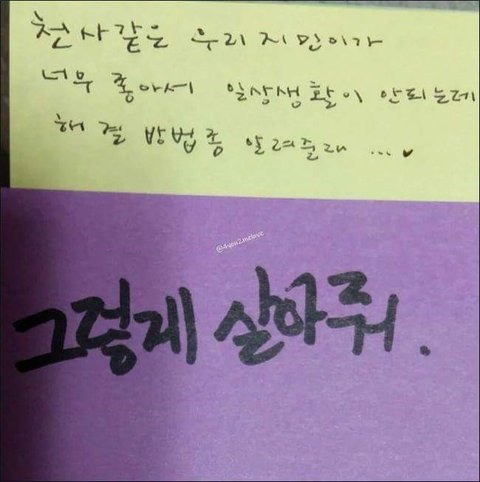 천사같은 우리지민이가
너무 좋아서 일상생활이 안되는데
해결 방법좀 알려줄래 ...♥
@4you2.melove
그렇게 살아줘.